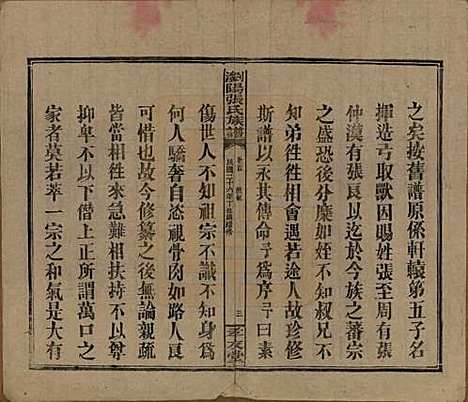 之矣按舊譜原係軒轅第五子名
揮造弓取獸因賜姓張至周有張
仲漢有張良以至於今族之蕃宗
之盛恐後分糜如姪不知叔兄不
知弟徃徃相視若途人故珍修
斯譜以永其傳命予為序予曰素
瀏陽張氏族譜
卷首
民國二十六年丁丑續修
三
孝友堂
傷世人不譜不識不知身為
何人驕奢自恣視骨肉如路人良
可惜也故今修纂之後無論親疏
皆當相徃來急難相扶持不以尊
抑卑不以下僭上正所謂萬口之
家者莫若萃一宗之和氣是大有